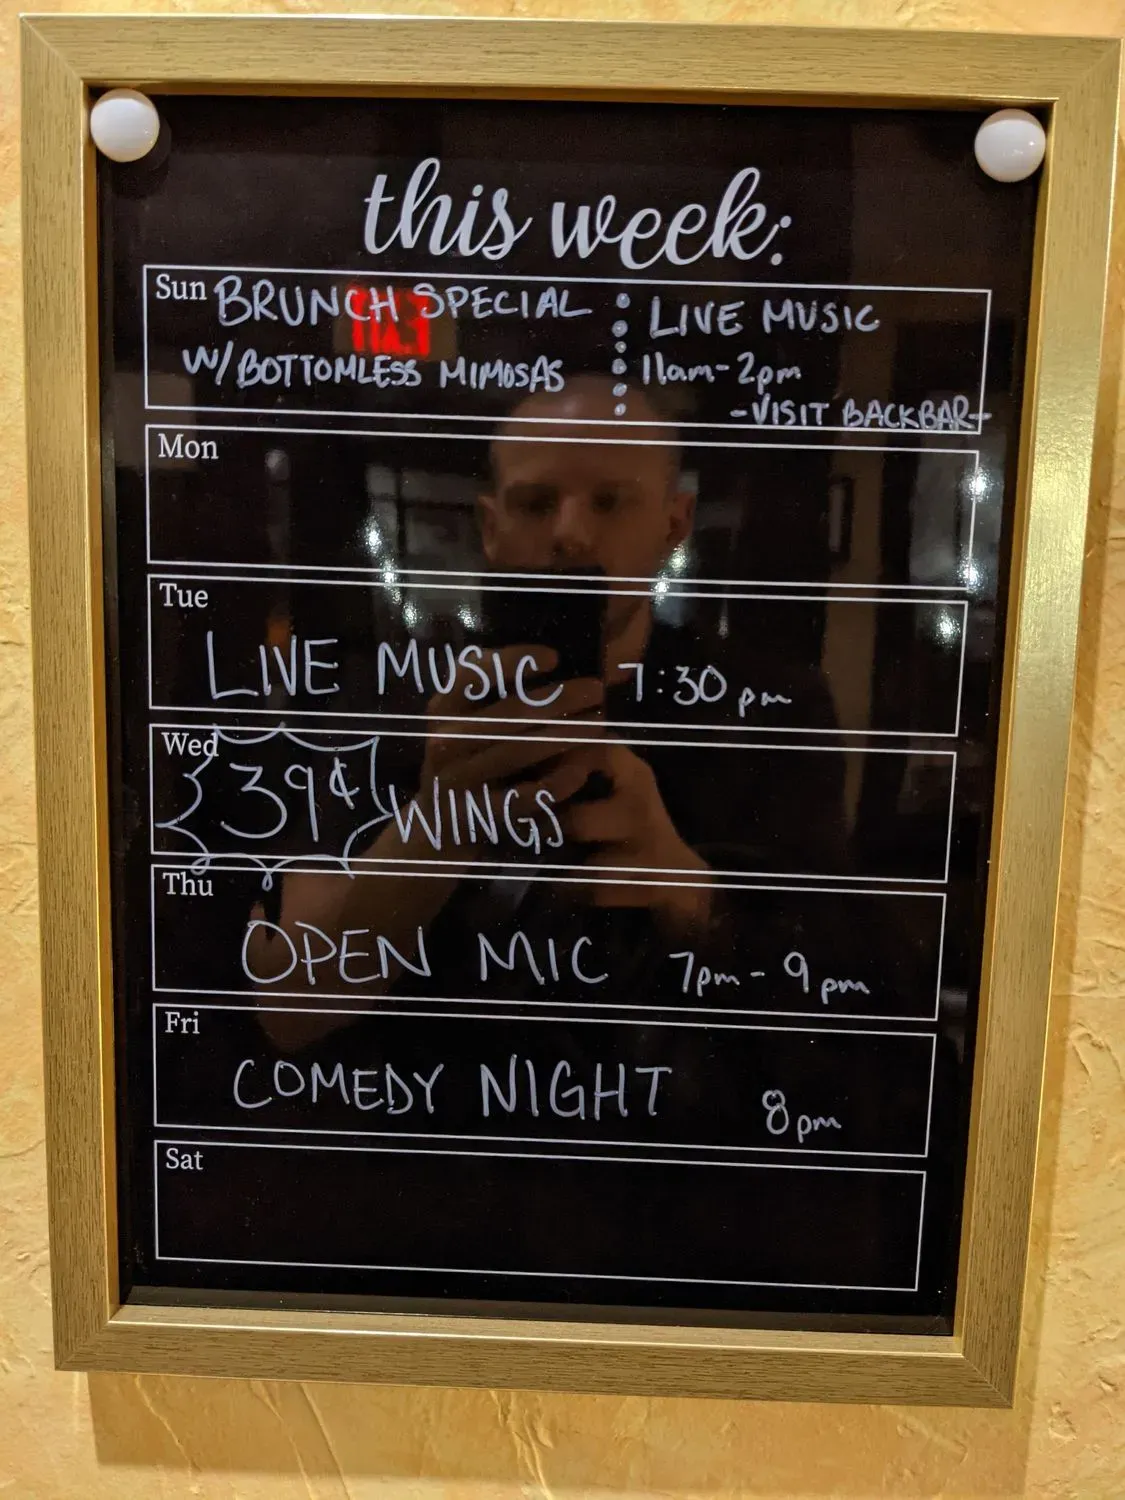 this week:
Sun BRUNCH SPECIAL
W/ BOTTOMLESS MIMOSAS
LIVE MUSIC
11am-2pm
-VISIT BACKBAR-
Mon
Tue
LIVE MUSIC 7:30pm
Wed
39¢ WINGS
Thu
OPEN MIC 7pm-9pm
Fri
COMEDY NIGHT 8pm
Sat